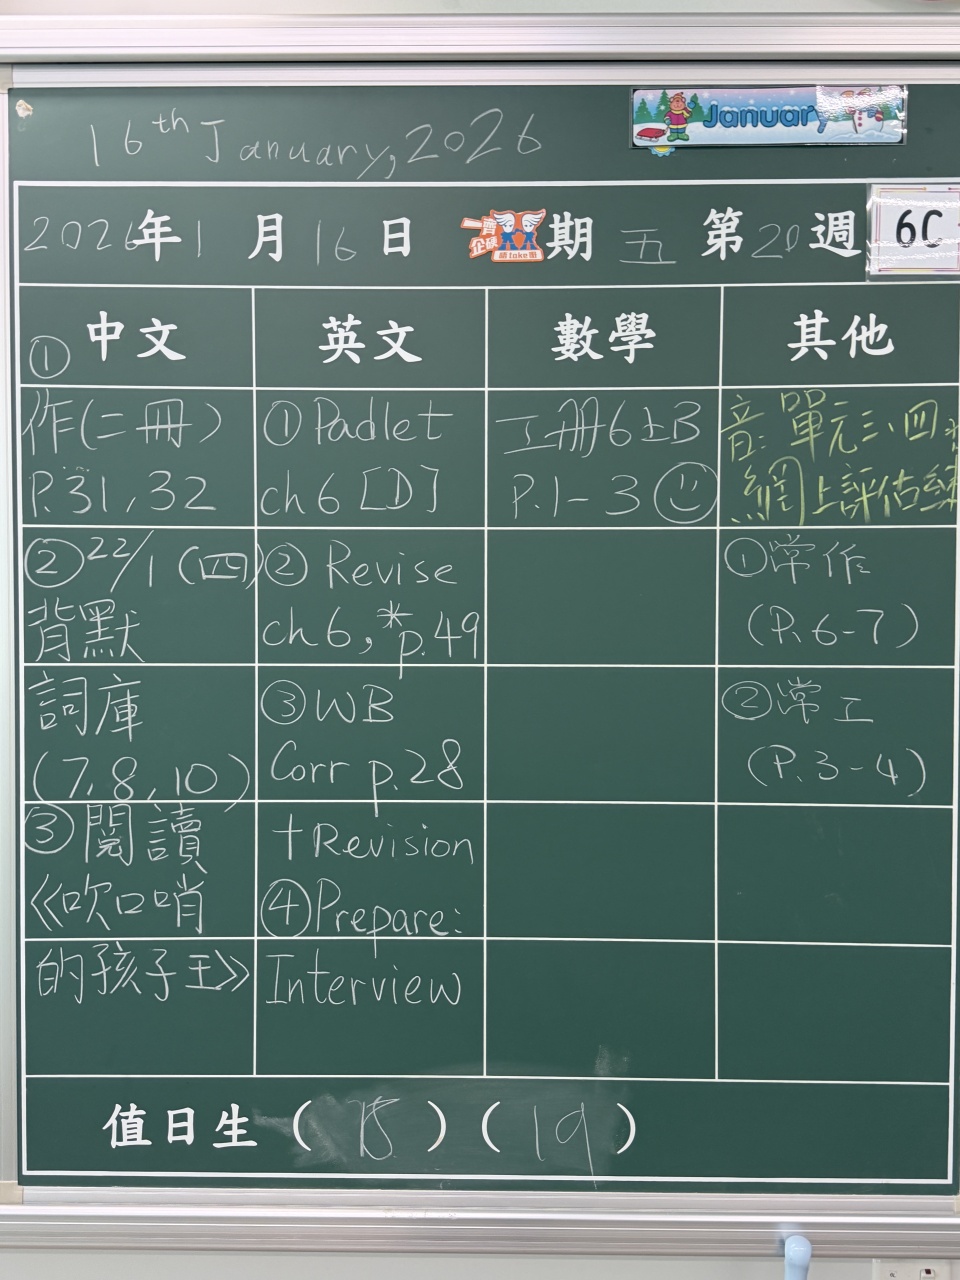 16th January, 2026
January
2026年1月16日 期五 第20週
6C
一齊企硬
唔take嘢
中文
①作(二冊)
P.31,32
②22/1(四)
背默
詞庫
(7,8,10)
③閱讀
《吹口哨
的孩子王》
英文
①Padlet
ch6 [D]
② Revise
ch6, *p.49
③WB
Corr p.28
+Revision
④Prepare:
Interview
數學
工册6上B
P.1-3
其他
音:單元三、四
網上評估練
①常作
(P.6-7)
②常工
(P.3-4)
值日生( )(19)